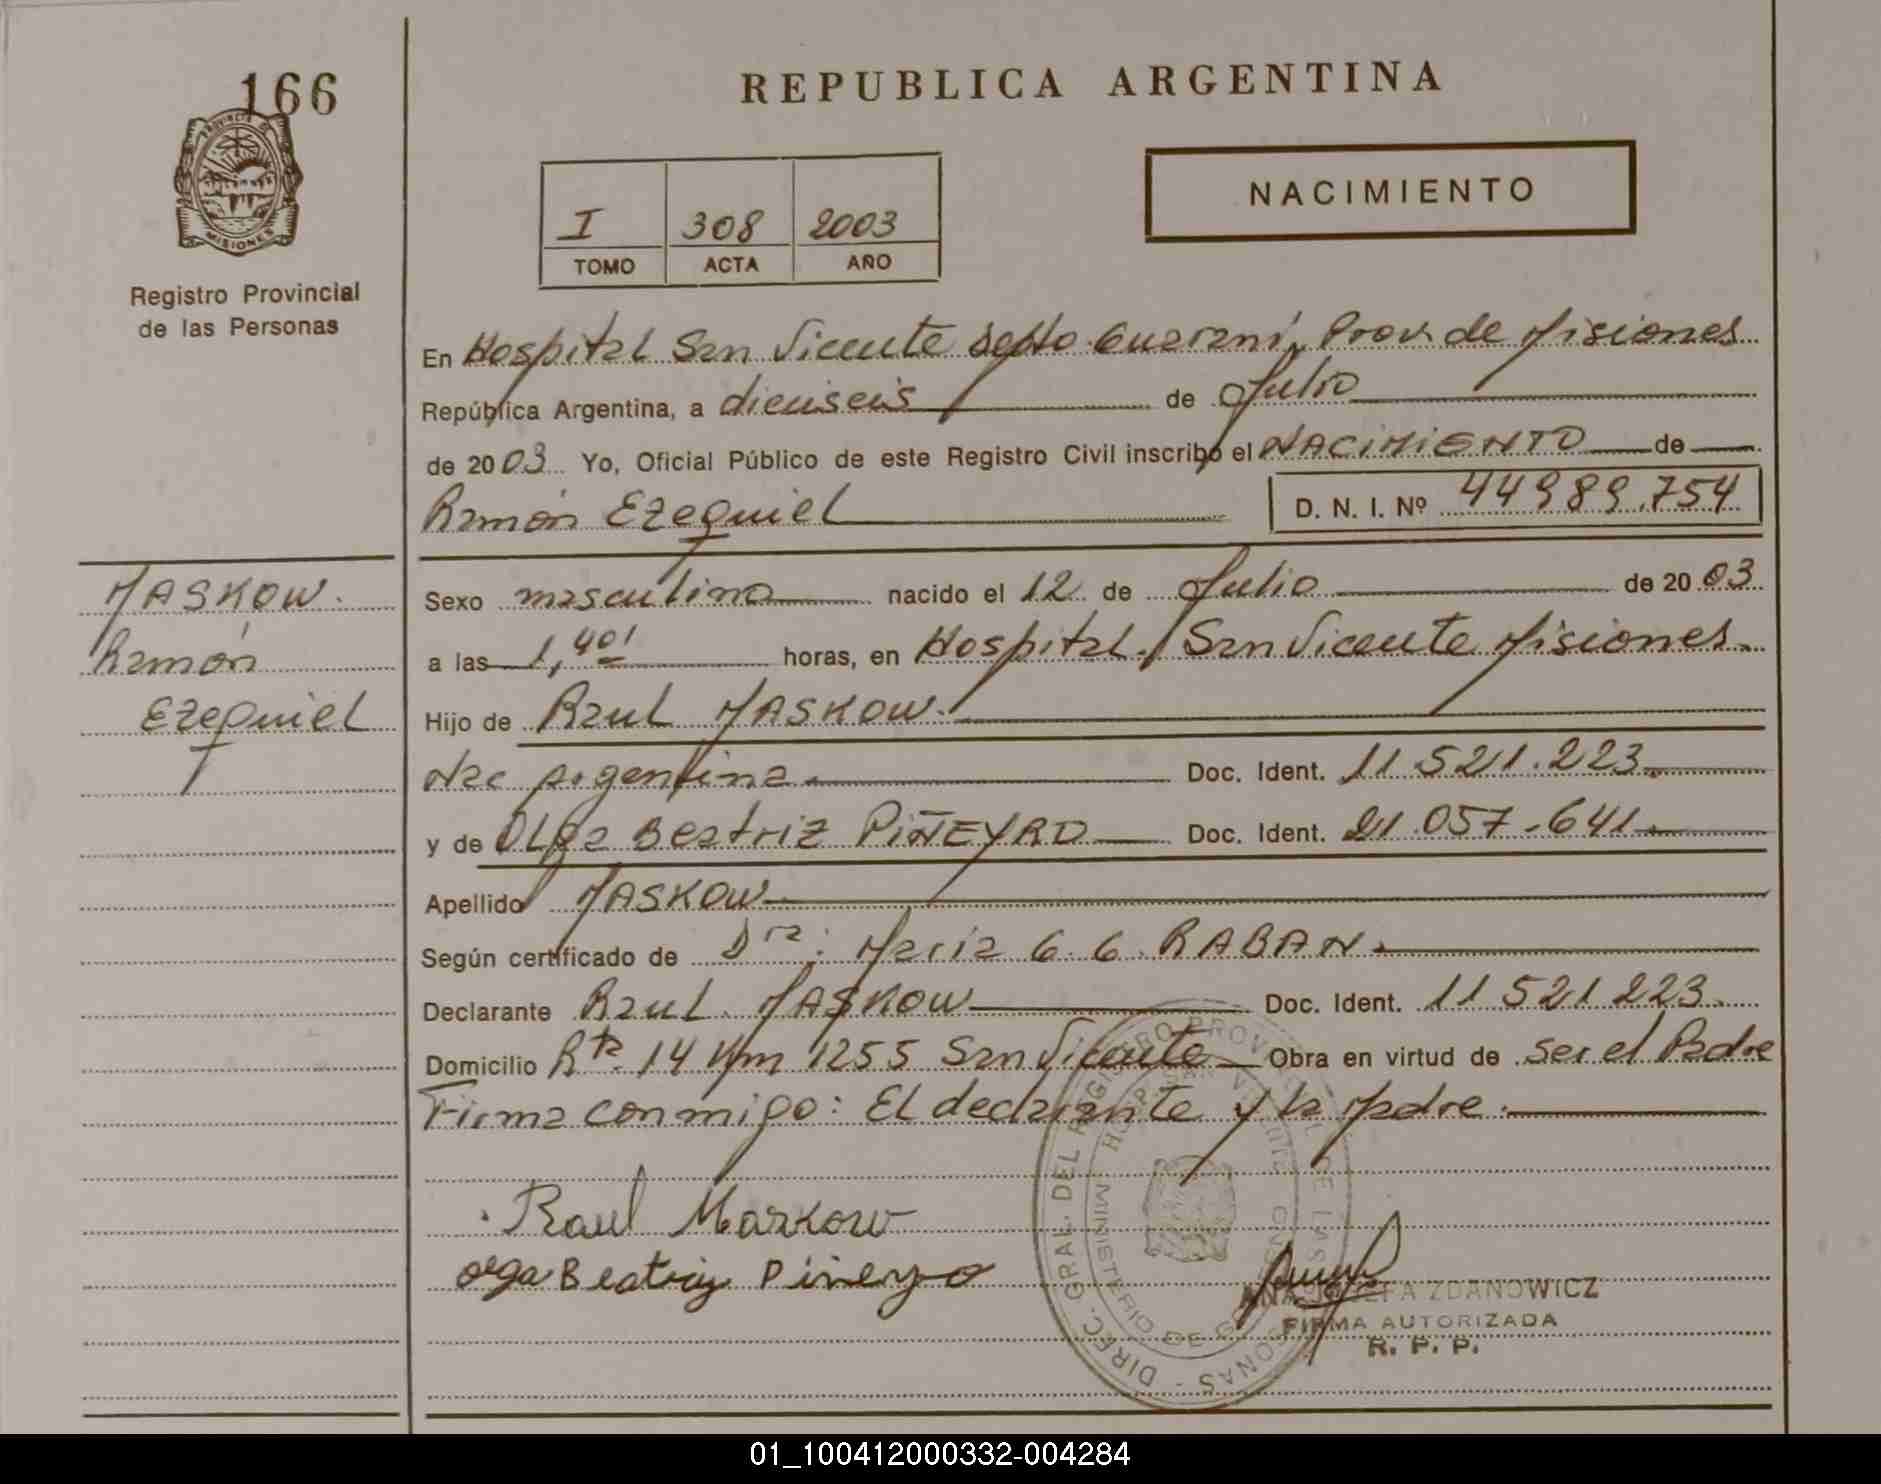 166
PROVINCIA DE
MISIONES
Registro Provincial
de las Personas
REPUBLICA ARGENTINA
I 308 2003
TOMO ACTA AÑO
NACIMIENTO
En Hospital San Vicente Depto. Guaraní, Prov. de Misiones
República Argentina, a dieciseis de Julio
de 2003 Yo, Oficial Público de este Registro Civil inscribo el NACIMIENTO de
Ramón Ezequiel D. N. I. Nº 44989.754
MASKOW.
Ramón
Ezequiel
Sexo masculino nacido el 12 de Julio de 2003
a las 1,40' horas, en Hospital. San Vicente Misiones.
Hijo de Raul MASKOW.
Nac Argentina. Doc. Ident. 11.521.223.
y de Olga Beatriz PIÑEYRO Doc. Ident. 21.057.641.
Apellido MASKOW
Según certificado de Dra: Maria G. G. RABAN.
Declarante Raul MASKOW Doc. Ident. 11 521 223.
Domicilio Rta. 14 Km 1255 San Vicente Obra en virtud de ser el Padre
Firma conmigo: El declarante y la Madre.
Raul Maskow
olga Beatriz Pineyro
DIREC. GRAL. DEL REGISTRO PROVINCIAL DE LAS PERSONAS
HOSPITAL SAN VICENTE
MINISTERIO DE
ANA JOSEFA ZDANOWICZ
FIRMA AUTORIZADA
R. P. P.
01_100412000332-004284